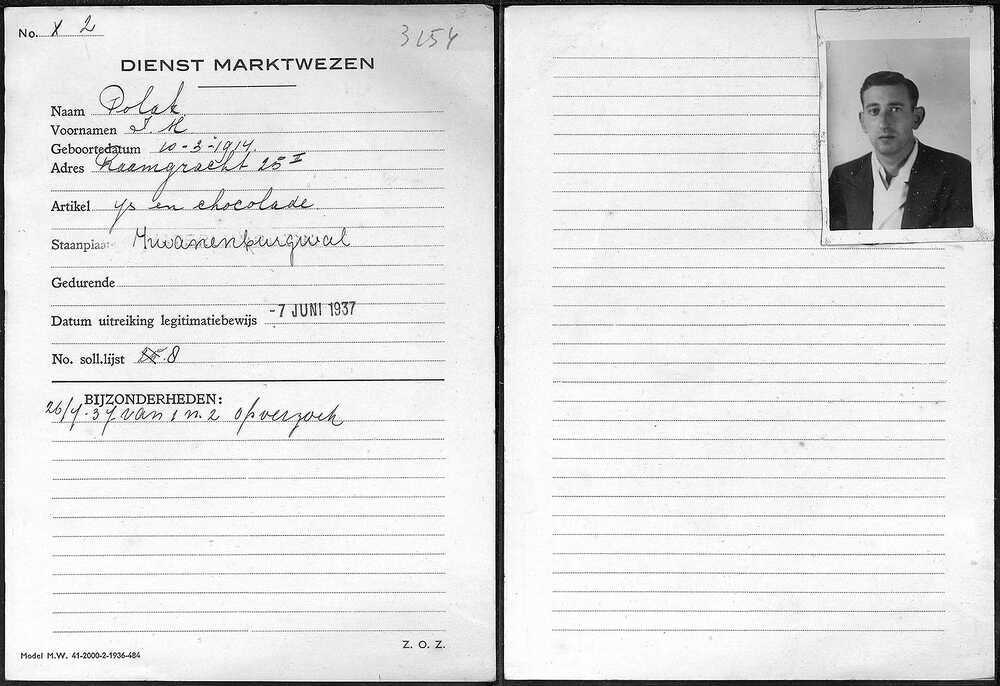 No. X 2
3154
DIENST MARKTWEZEN
Naam Polak
Voornamen J. M
Geboortedatum 10-3-1914.
Adres Raamgracht 25 I
Artikel ys en chocolade
Staanplaats Zwanenburgwal
Gedurende
Datum uitreiking legitimatiebewijs -7 JUNI 1937
No. soll.lijst 8
BIJZONDERHEDEN:
26/7-37 van 1 n. 2 op verzoek
Z. O. Z.
Model M.W. 41-2000-2-1936-484